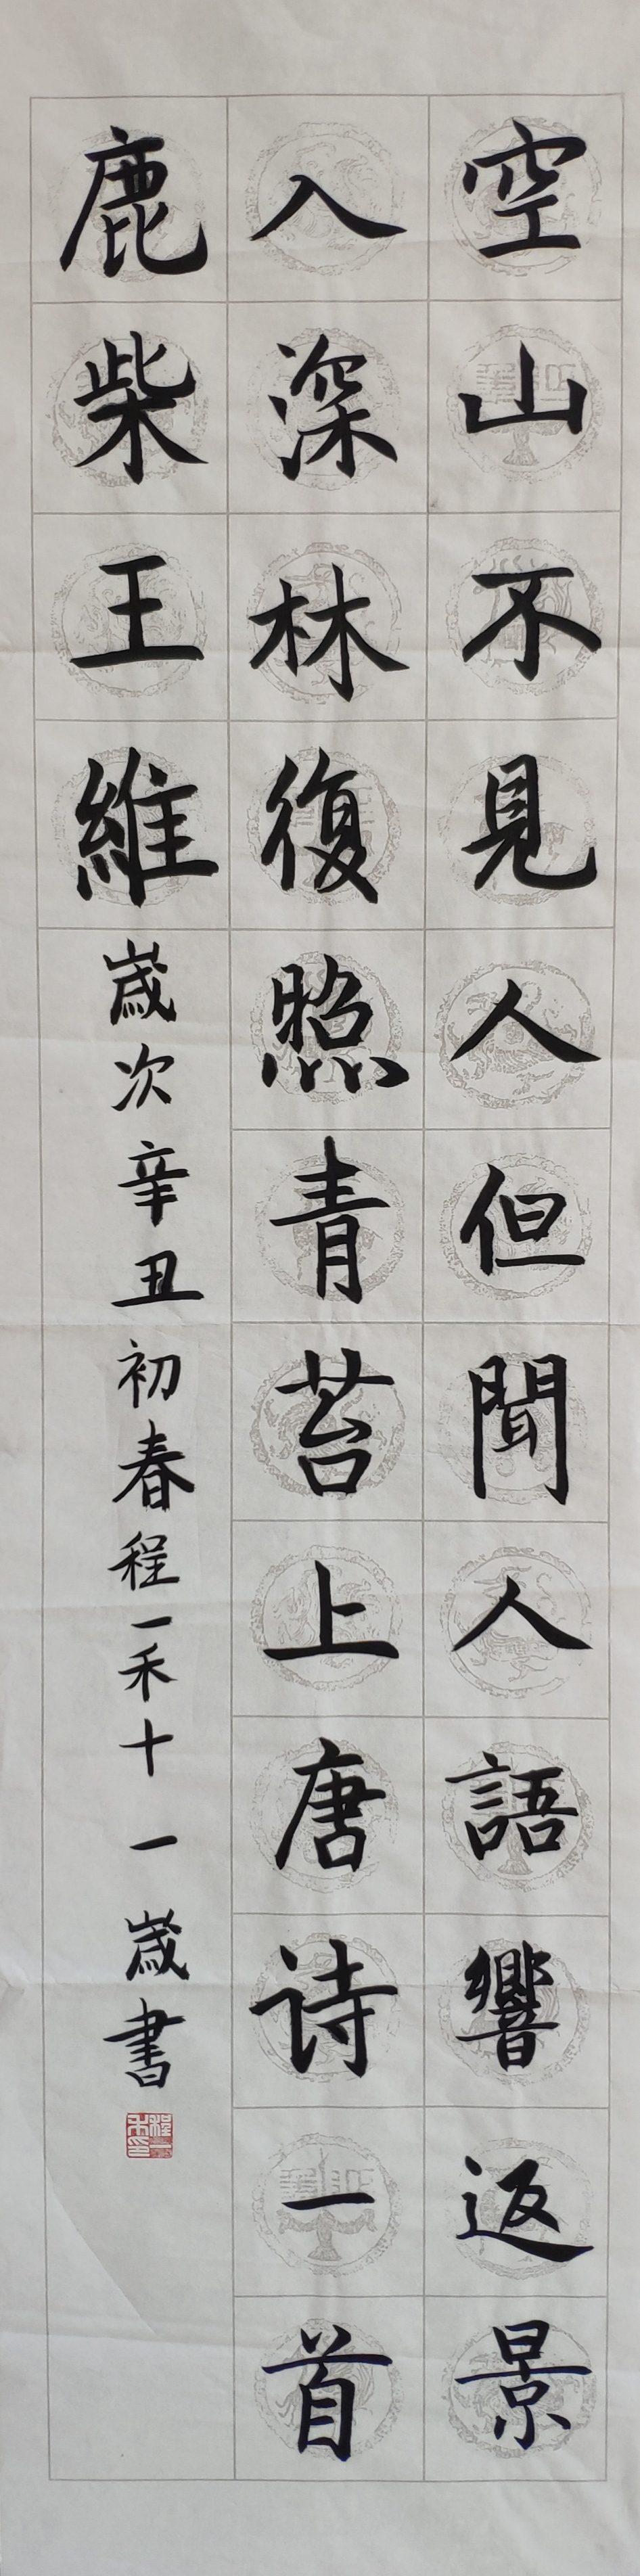 空山不見人但聞人語響返景
入深林復照青苔上唐诗一首
鹿柴王維
歳次辛丑初春程一禾十一歳書
程一禾印